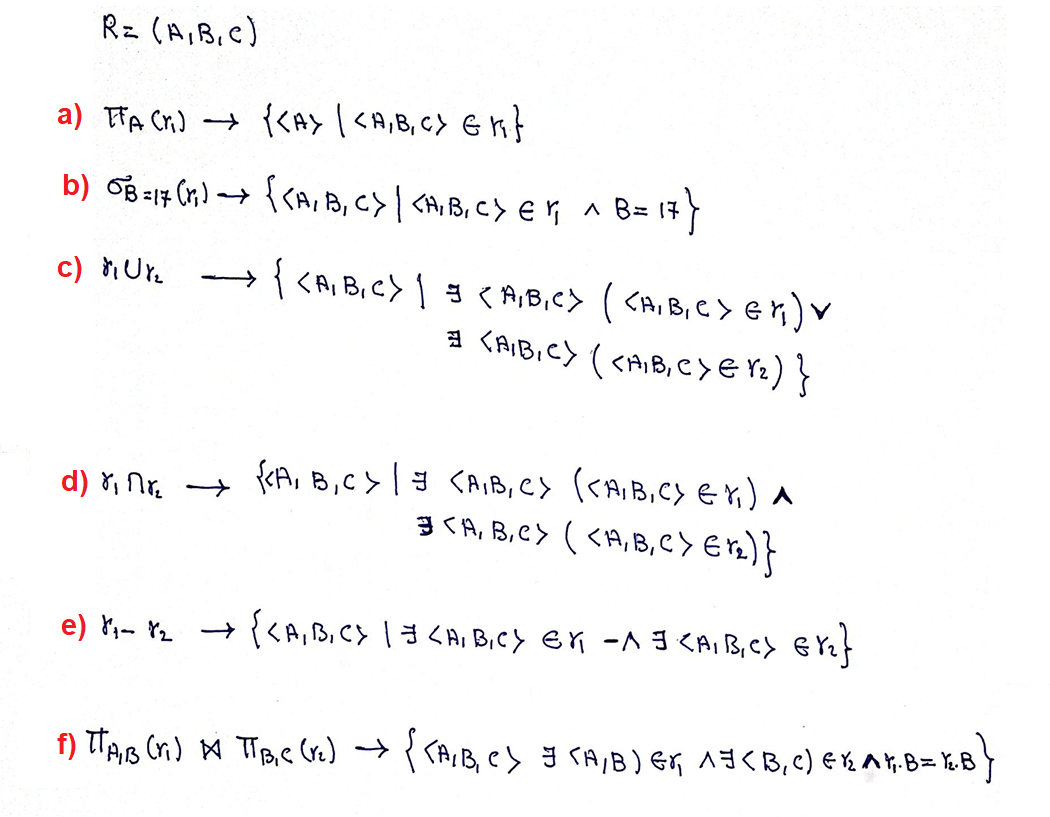 R = (A, B, C)
a) π_A (r₁) → {<A> | <A, B, C> ∈ r₁}
b) σ_B=17 (r₁) → {<A, B, C> | <A, B, C> ∈ r₁ ∧ B = 17}
c) r₁ ∪ r₂ → { <A, B, C> | ∃ <A, B, C> ( <A, B, C> ∈ r₁ ) ∨
∃ <A, B, C> ( <A, B, C> ∈ r₂ ) }
d) r₁ ∩ r₂ → {<A, B, C> | ∃ <A, B, C> (<A, B, C> ∈ r₁) ∧
∃ <A, B, C> ( <A, B, C> ∈ r₂)}
e) r₁ - r₂ → {<A, B, C> | ∃ <A, B, C> ∈ r₁ -∧ ∃ <A, B, C> ∈ r₂}
f) π_A,B (r₁) ⋈ π_B,C (r₂) → { <A, B, C> ∃ <A, B) ∈ r₁ ∧ ∃ <B, C) ∈ r₂ ∧ r₁.B = r₂.B }